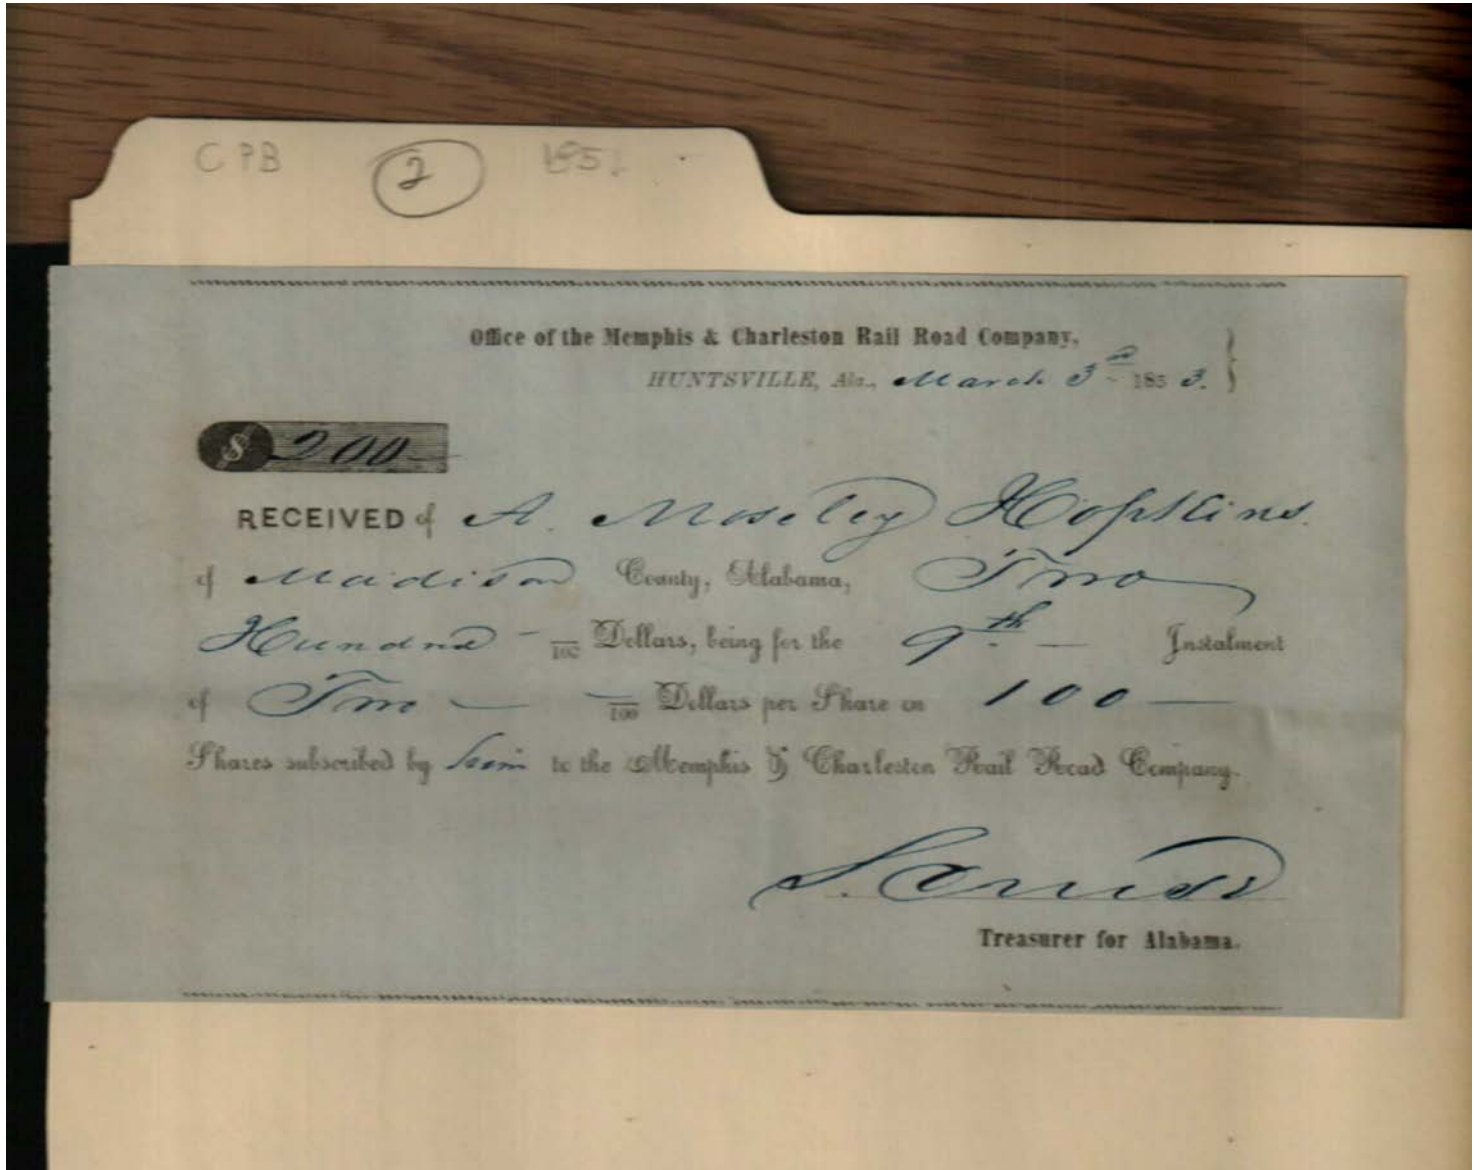 CPB 2 1851
Office of the Memphis & Charleston Rail Road Company,
HUNTSVILLE, Ala., March 3rd 1853.
$ 200
RECEIVED of A. Moseley Hopkins.
of Madison County, Alabama, Two
Hundred — /100 Dollars, being for the 9th — Instalment
of Two — — /100 Dollars per Share on 100 —
Shares subscribed by him to the Memphis & Charleston Rail Road Company.
S.
Treasurer for Alabama.